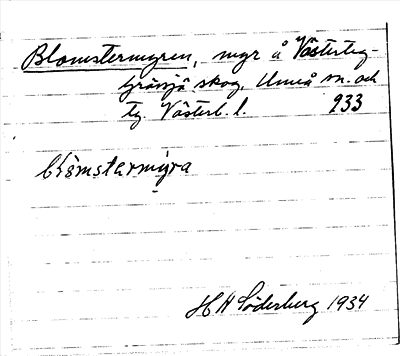 Blomstermyren, myr å Västerteg-
Gräsjä skog, Umeå sn. och
tg. Västerb. l. 933
blömstermyra
H H Söderberg 1934